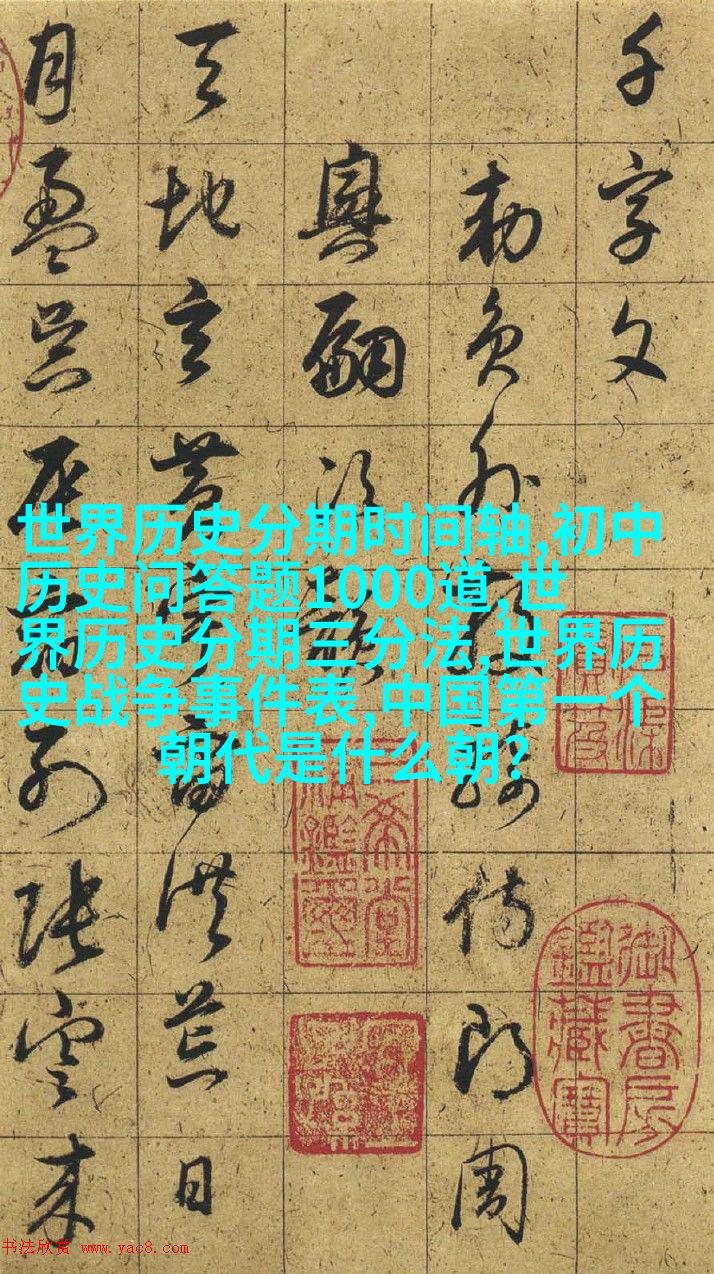 千字文
勑員外散騎侍郎周
興嗣次韻
天地玄黃宇宙洪荒日
月盈昃辰宿列張寒來
世界历史分期时间轴,初中
历史问答题1000道,世
界历史分期三分法,世界历
史战争事件表,中国第一个
朝代是什么朝?
三希堂
精鑑璽
御書房
鑑藏寶
书法欣赏 www.yac8.com